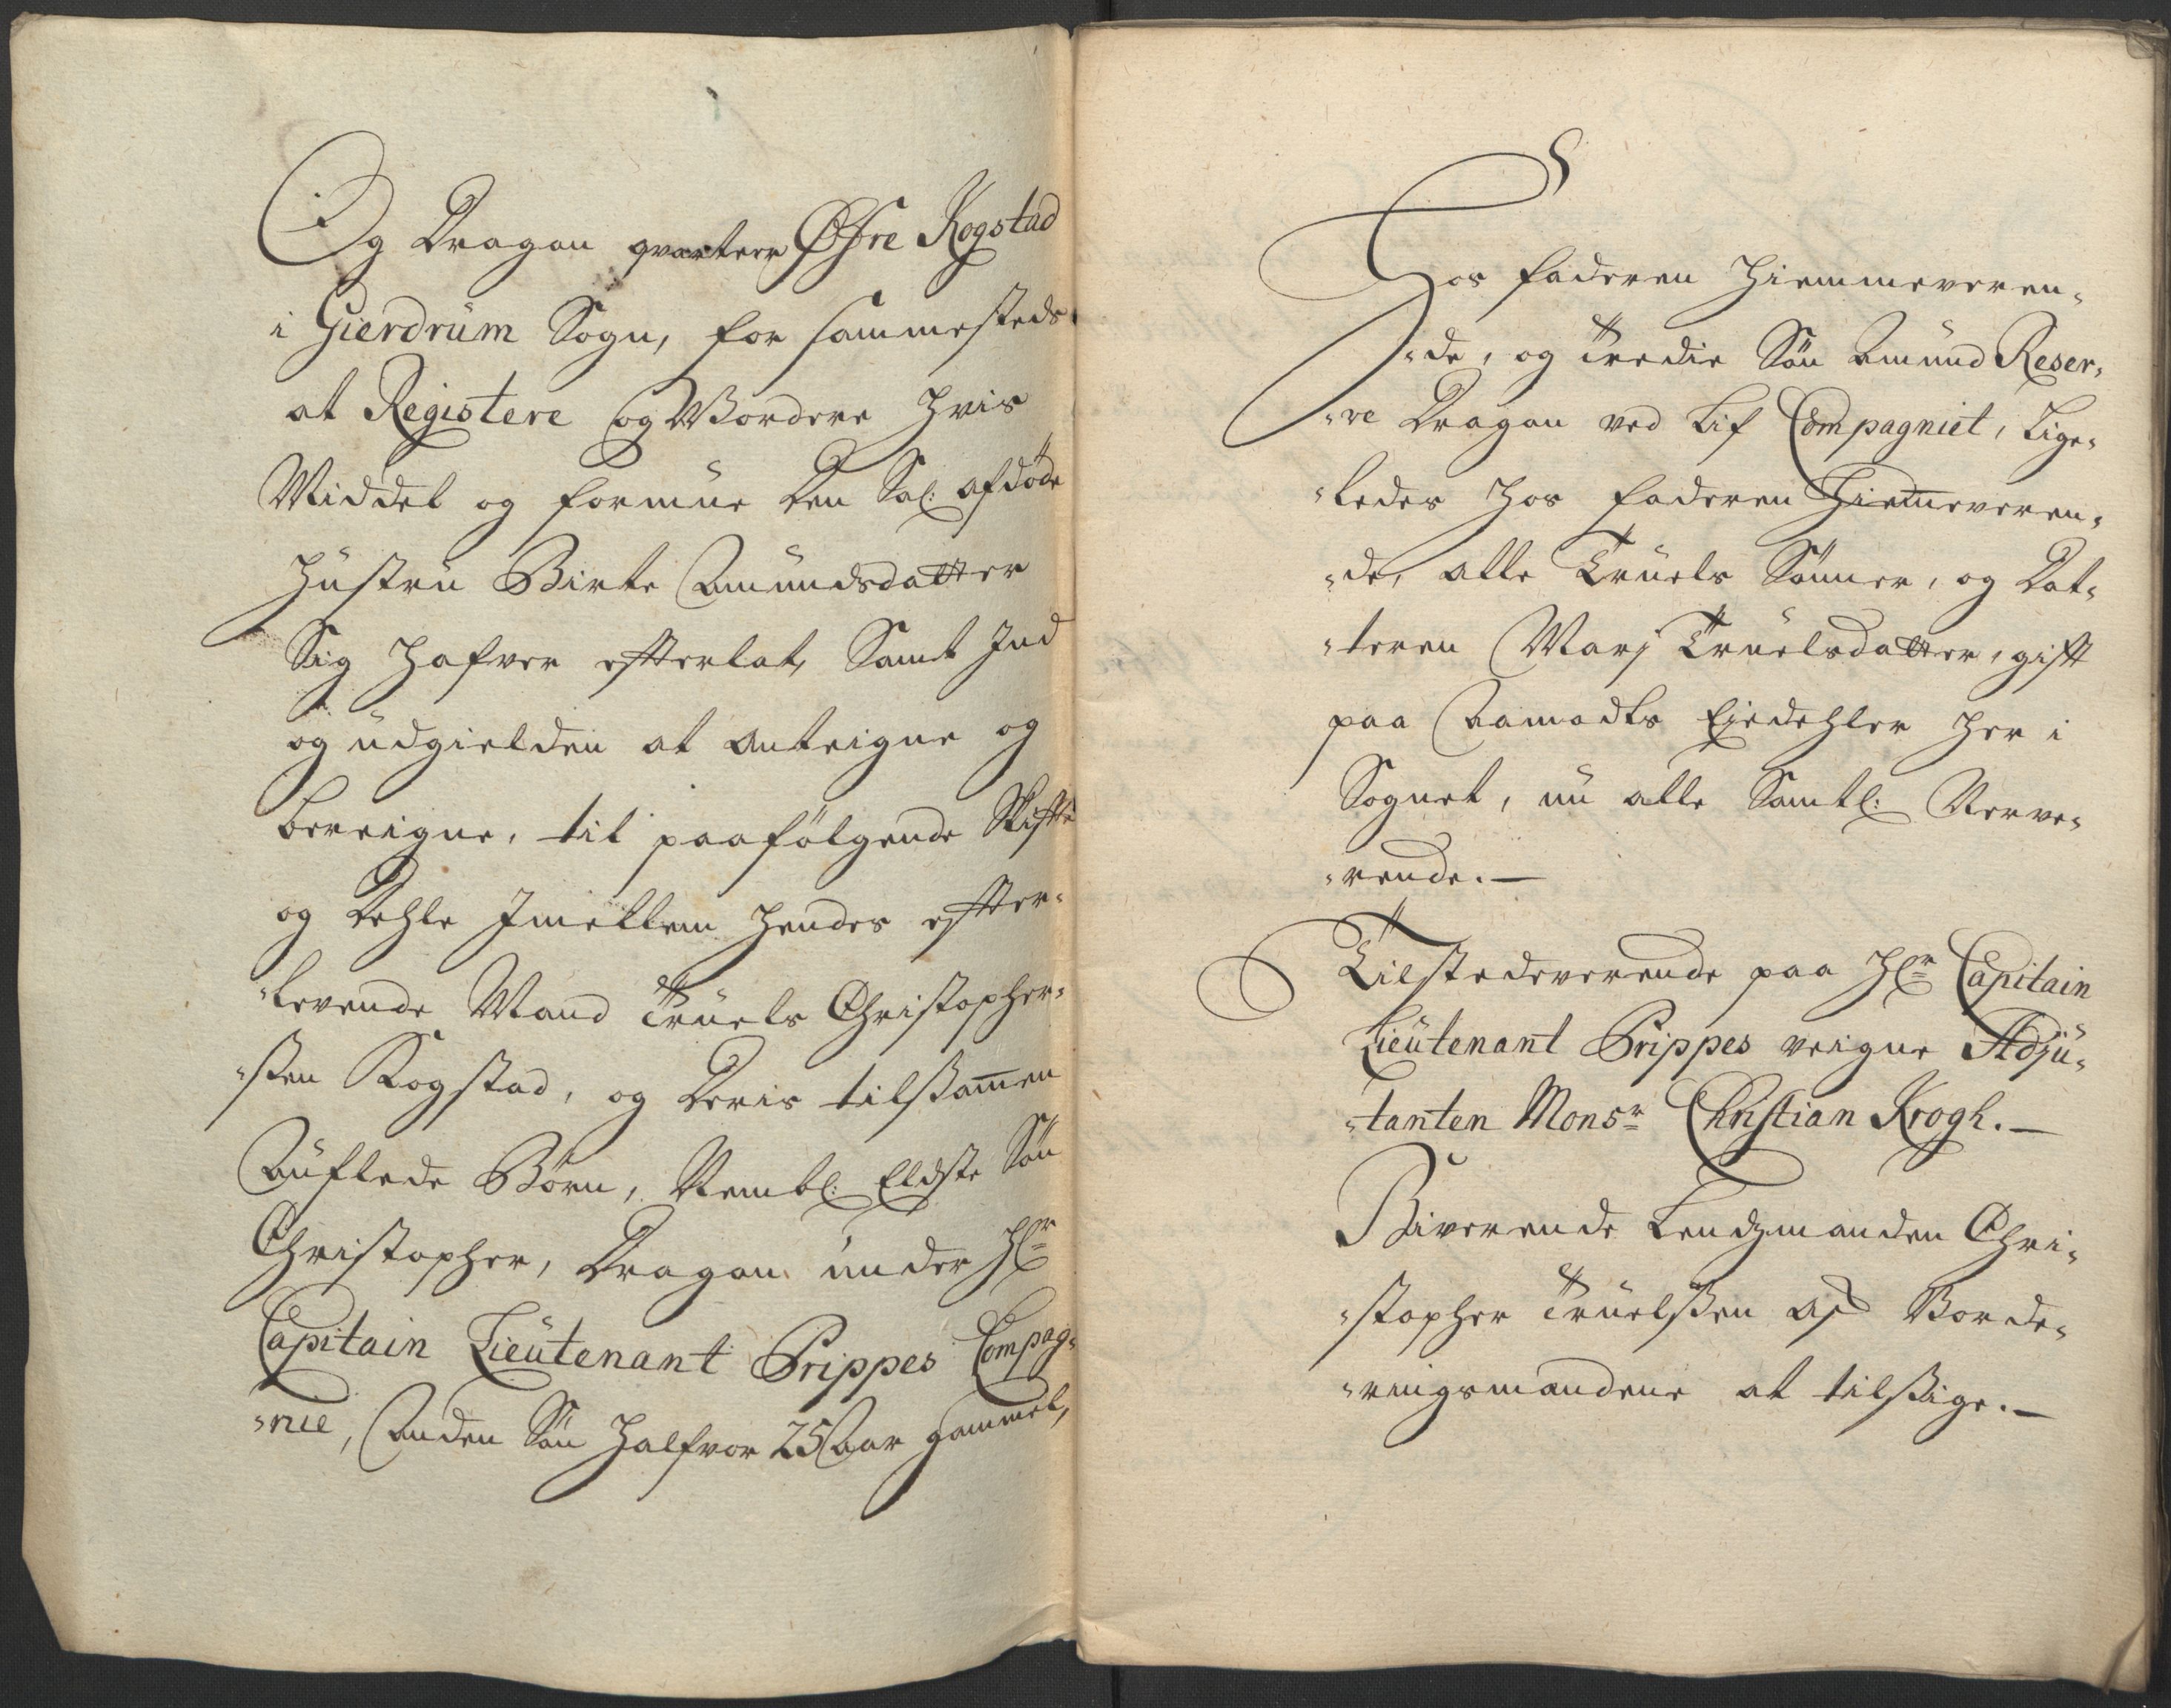 Og Dragon qvarteer Øfre Kogstad
i Gierdrum Sogn, for sammesteds
at Registere og Vordere hvis
Middel og formue den Sal: afdøde
Hustru Birte Amundsdatter
Sig hafver efterlat, Samt Ind
og udgielden at Anteigne og
bereigne, til paafølgende Skifte
og Dehle Imellem hendes efter-
-levende Mand Truels Christopher-
-sten Kogstad, og deris tilsam̄en
Auflede Børn, Nembl: Eldste Søn
Christopher, Dragon under Hr
Capitain Lieutenant Grippes Compag-
-nie, Anden Søn Halfvor 25 Aar gammel,
Hos faderen Hiemmeveren-
-de, og Tredie Søn Amund Reser-
-ve Dragon ved Lif Compagniet, Lige-
-ledes hos faderen Hiem̄everen-
-de, alle Truels Sønner, og Dat-
-teren Marj Truelsdatter, gift
paa Aamodts Eiedehler her i
Sognet, nu alle Samtl: Nerve-
-rende. —
Tilstedeverende paa Hr Capitain
Lieutenant Grippes veigne Adju-
-tanten Monsr Christian Krogh. —
Biverende Lendzmanden Chri-
-stopher Truelssen og Vorde-
-ringsmændene at tilssige. —